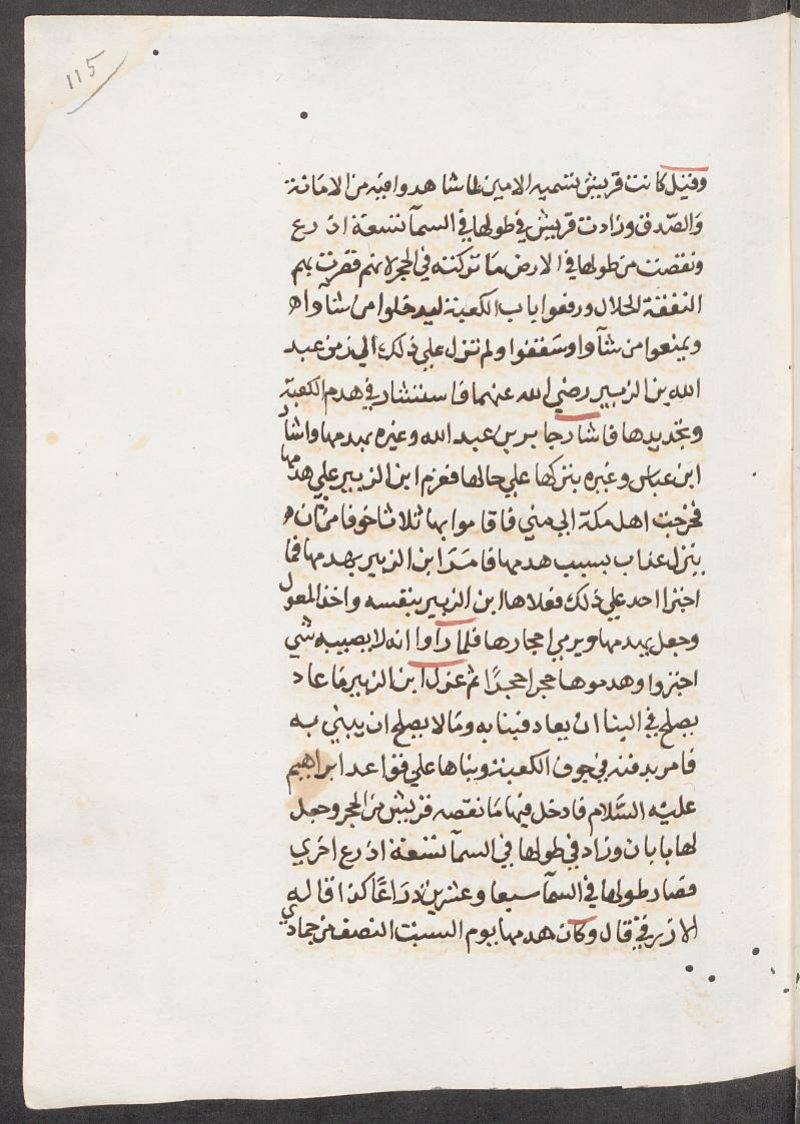 115
وقيل كانت قريش تسميه الامين لما شاهدوا فيه من الامانة
والصدق وزادت قريش في طولها في السمآ تسعة اذرع
ونقصت من طولها في الارض ما تركته في الحجر لانهم قصرت بهم
النفقة الحلال ورفعوا باب الكعبة ليدخلوا من شآوا
ويمنعوا من شآوا وسقفوا ولم تزل علي ذلك الي زمن عبد
الله بن الزبير رضي الله عنهما فاستشار في هدم الكعبة
وتجديدها فاشار جابر بن عبد الله وغيره بهدمها واشار
ابن عباس وغيره بتركها علي حالها فعزم ابن الزبير علي هدمها
فخرجت اهل مكة الي مني فاقاموا بها ثلاثا خوفا من ان
ينزل عذاب بسبب هدمها فامر ابن الزبير بهدمها فما
اجترا احد علي ذلك فعلاها ابن الزبير بنفسه واخذ المعول
وجعل يهدمها ويرمي احجارها فلما راوا انه لا يصيبه شي
اجتروا وهدموها حجرا حجرا ثم عزل ابن الزبير ما عاد
يصلح في البنا ان يعاد فبنا به وما لا يصلح ان يبني به
فامر بدفنه في جوف الكعبة وبناها علي قواعد ابراهيم
عليه السلام فادخل فيها ما نقصه قريش من الحجر وجعل
لها بابان وزاد في طولها في السمآ تسعة اذرع اخري
فصار طولها في السمآ سبعا وعشرين ذراعا كذا قاله
الازرقي قال وكان هدمها يوم السبت النصف من جمادي